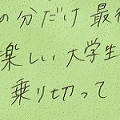 の分だけ 最
楽しい大学生
乗り切って